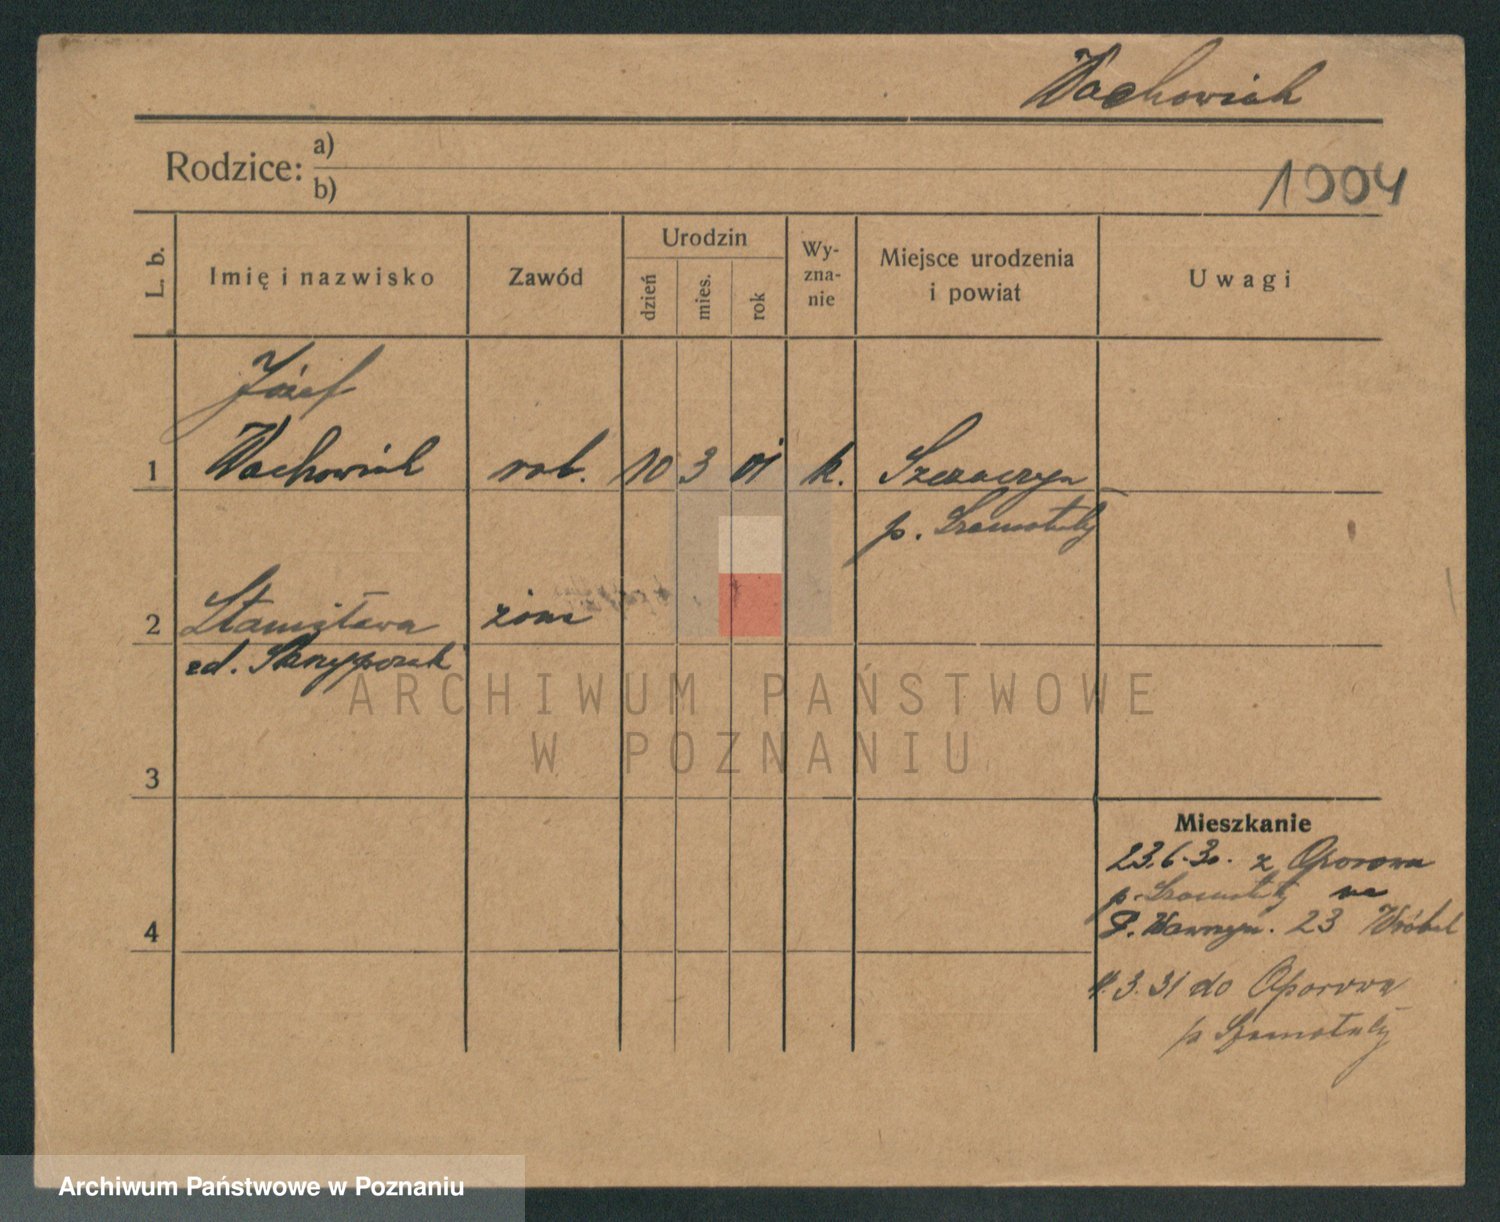 Wachowiak
Rodzice: a)
b)
1004
L. b.
Imię i nazwisko
Zawód
Urodzin
dzień
mies.
rok
Wy-
zna-
nie
Miejsce urodzenia
i powiat
Uwagi
Józef
1 Wachowiak rob. 10 3 01 k.
p. Szamotuły
2 Stanisława żona
3
4
Mieszkanie
23.6.30. z Oporowa
p. Szamotuły na
23 Wróbel
3. 31 do Oporowa
p Szamotuły
ARCHIWUM PAŃSTWOWE
W POZNANIU
Archiwum Państwowe w Poznaniu